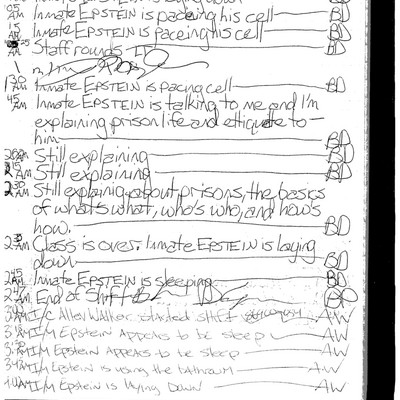 Inmate EPSTEIN is laying down BD
05 AM Inmate EPSTEIN is pacing his cell BD
15 AM Inmate EPSTEIN is paceing his cell BD
AM Staff rounds BD
130 AM Inmate EPSTEIN is pacing cell BD
45 AM Inmate EPSTEIN is talking to me and I'm
explaining prison life and etiquate to
him BD
AM Still explaining BD
215 AM Still explaining BD
230 AM Still explainig about prisons, the basics
of what's what, who's who, and how's
how. BD
AM Class is over. Inmate EPSTEIN is laying
down BD
245 AM Inmate EPSTEIN is sleeping BD
End of Shift BD
I/C Allen Walker started shift AW
I/M Epstein Appears to be sleep AW
I/M Epstein Appears to be sleep AW
I/M Epstein is using the bathroom AW
I/M Epstein is laying Down AW